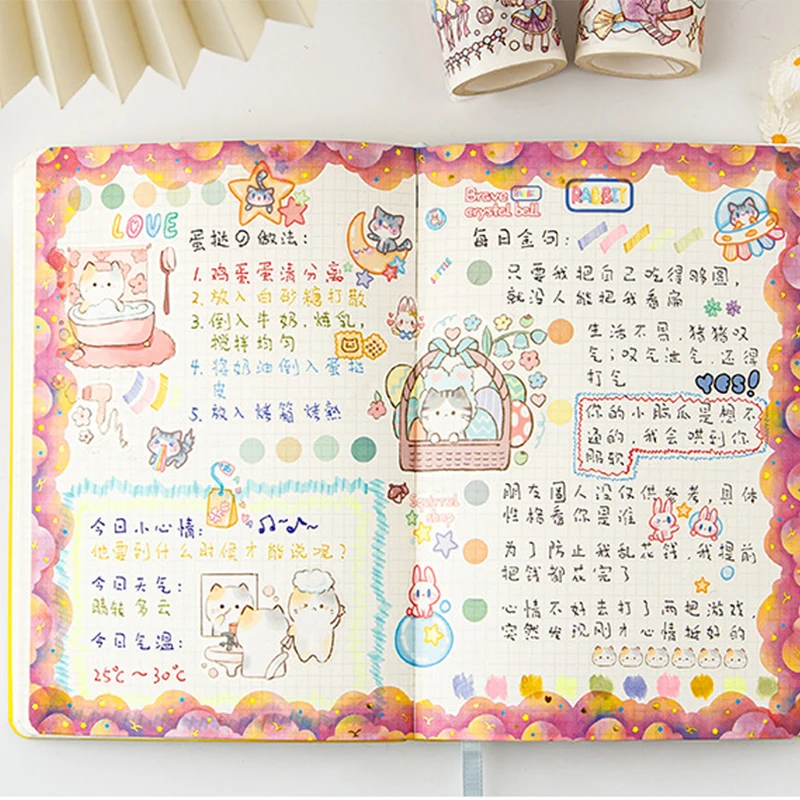 LOVE
蛋挞の做法:
1. 鸡蛋蛋清分离
2. 放入白砂糖打散
3. 倒入牛奶.炼乳,
搅拌均匀
4. 将奶油倒入蛋挞
皮
5. 放入烤箱烤熟
今日小心情:
他要到什么时候才能说呢?
今日天气:
晴转多云
今日气温:
25℃~30℃
Brave
crystal ball
RABBIT
每日金句:
只要我把自己吃得够圆,
就没人能把我看扁
生活不易,猪猪叹
气;叹气泄气,还得
打气
YES!
你的小脑瓜是想不
通的,我会哄到你
服软
Squirrel
shop
朋友圈人设仅供参考,具体
性格看你是谁
为了防止我乱花钱,我提前
把钱都花完了
心情不好去打了两把游戏,
突然发现刚才心情挺好的